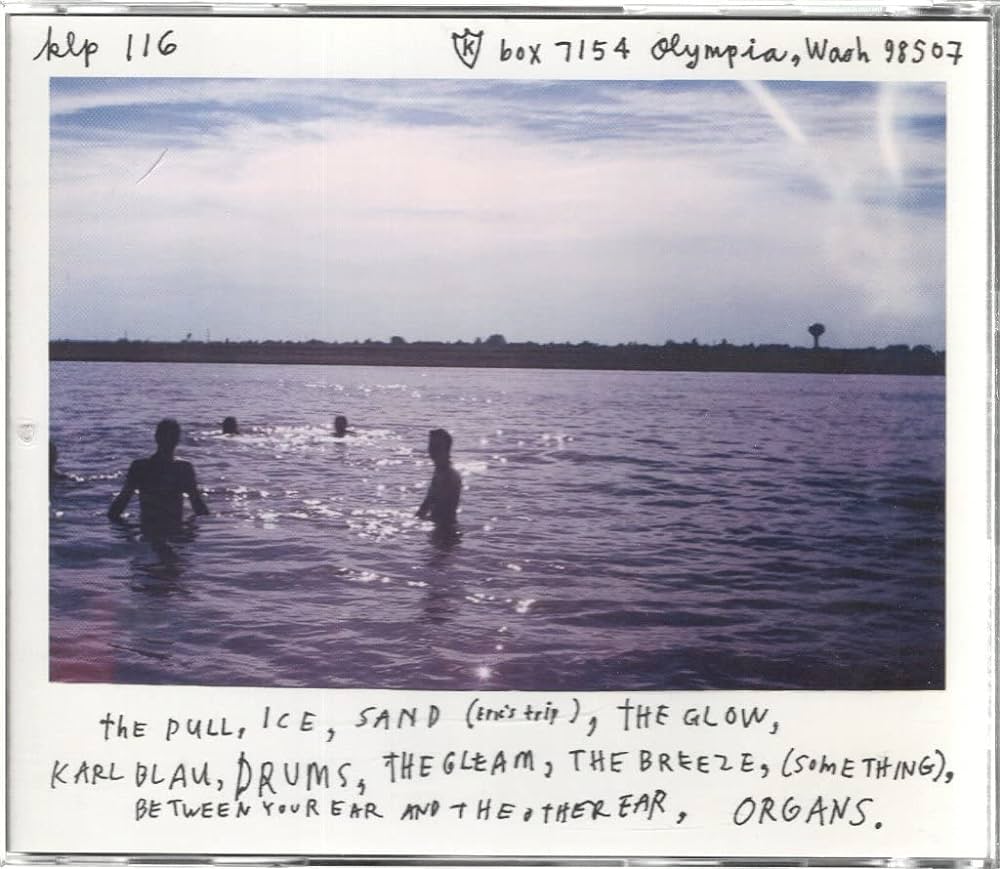 klp 116
K box 7154 Olympia, Wash 98507
the PULL, ICE, SAND (Eric's trip), THE GLOW,
KARL BLAU, DRUMS, THE GLEAM, THE BREEZE, (SOMETHING),
BETWEEN YOUR EAR AND THE OTHER EAR, ORGANS.